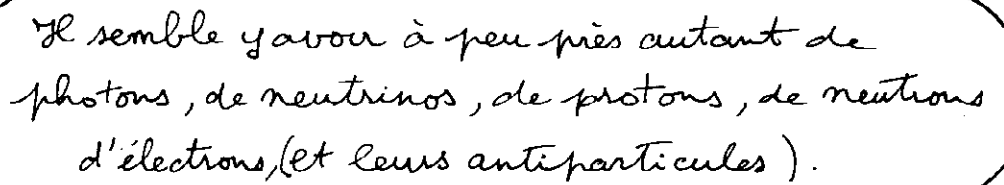 Il semble y avoir à peu près autant de
photons, de neutrinos, de protons, de neutrons
d'électrons, (et leurs antiparticules).